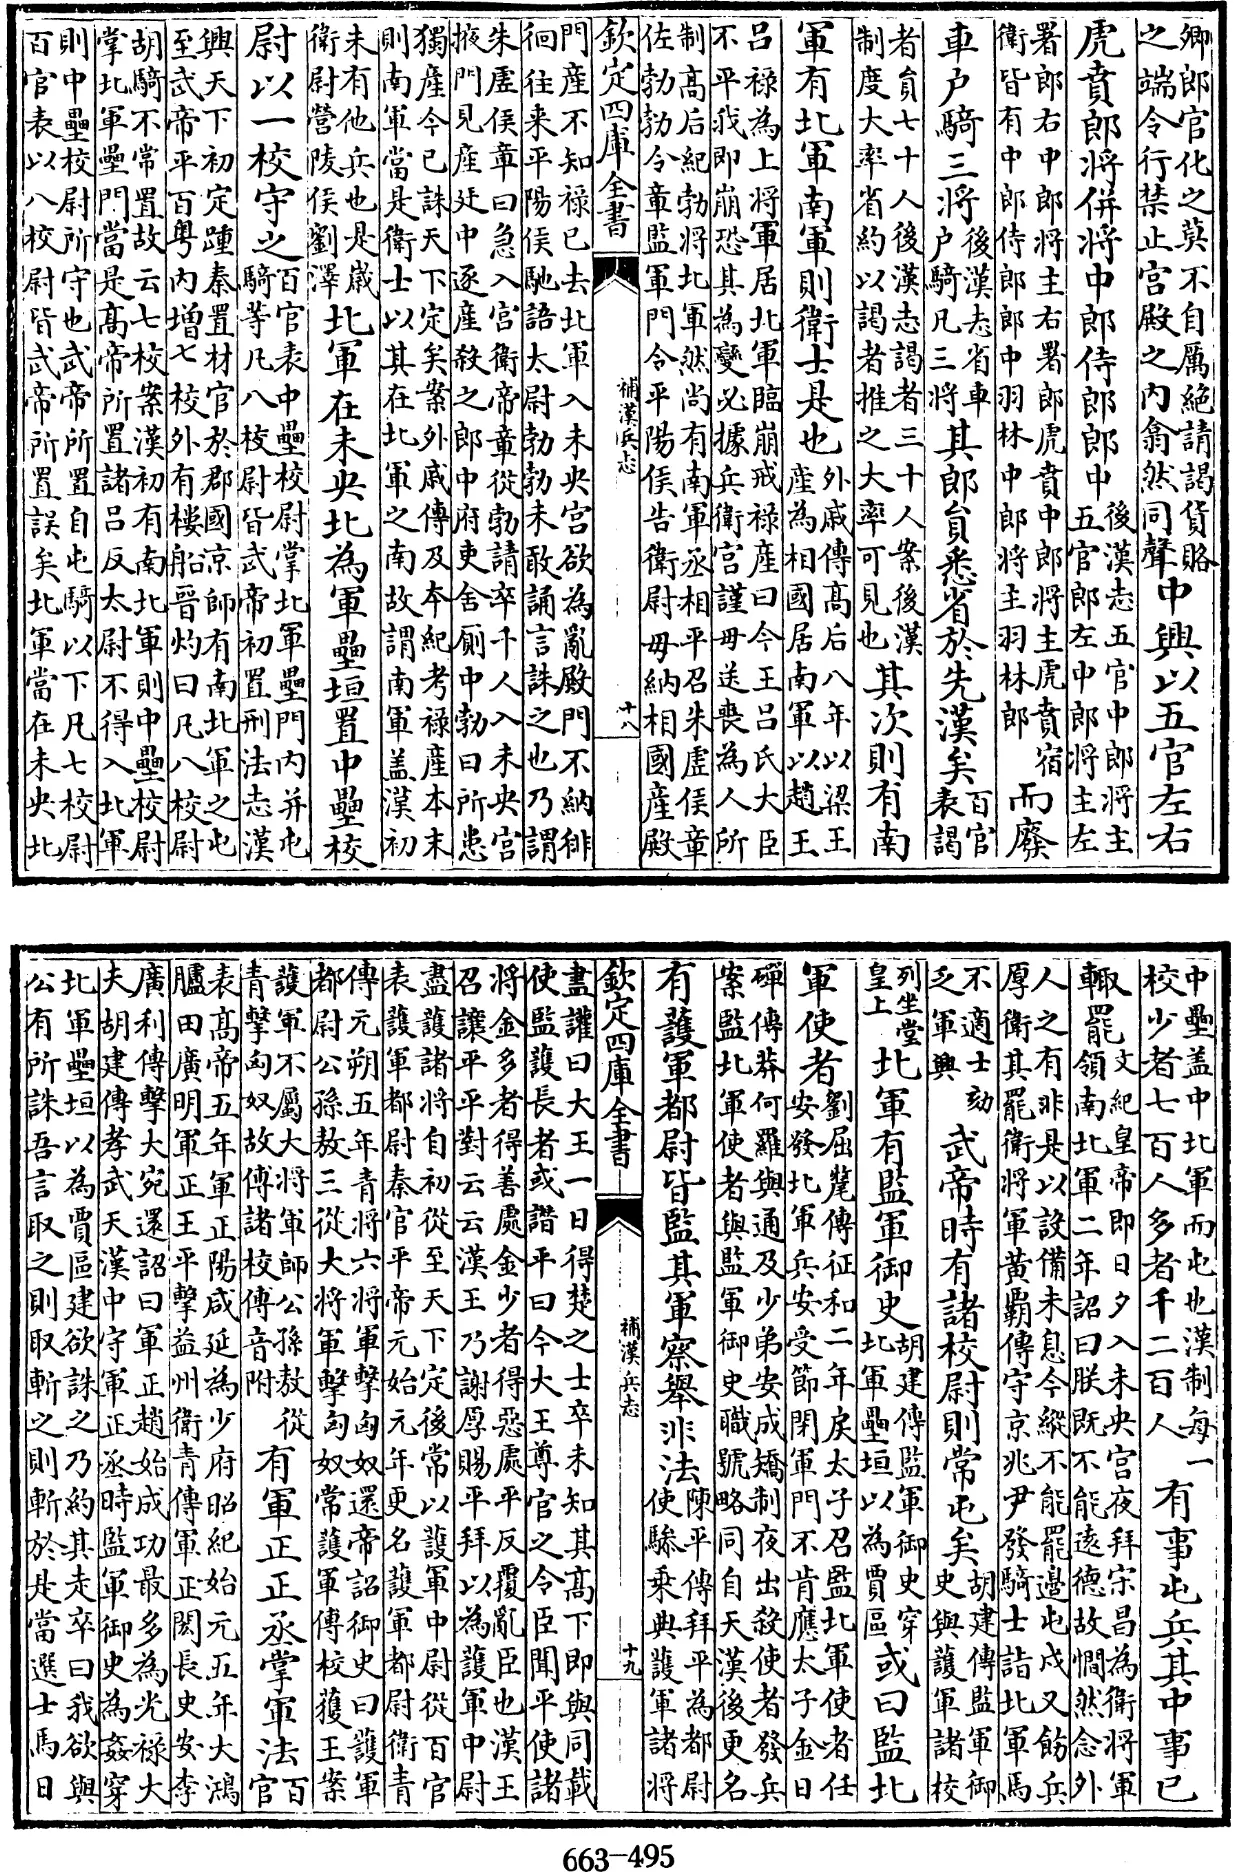 卿郎官化之莫不自厲絶請謁貨賂
之端令行禁止宫殿之内翕然同聲
中興以五官左右
虎賁郎將併將中郎侍郎郎中
後漢志五官中郎將主
五官郎左中郎將主左
署郎右中郎將主右署郎虎賁中郎將主虎賁宿
衛皆有中郎侍郎郎中羽林中郎將主羽林郎
而廢
車户騎三將
後漢志省車
户騎凡三將
其郎員悉省於先漢矣
百官
表謁
者員七十人後漢志謁者三十人案後漢
制度大率省約以謁者推之大率可見也
其次則有南
軍有北軍南軍則衛士是也
外戚傳髙后八年以梁王
産為相國居南軍以趙王
吕禄為上將軍居北軍臨崩戒禄産曰今王吕氏大臣
不平我即崩恐其為變必據兵衛宫謹毋送喪為人所
制髙后紀勃將北軍然尚有南軍丞相平召朱虚侯章
佐勃勃令章監軍門令平陽侯告衛尉毋納相國産殿
欽定四庫全書
補漢兵志
十八
門産不知禄已去北軍入未央宫欲為亂殿門不納徘
徊往来平陽侯馳語太尉勃勃未敢誦言誅之也乃謂
朱虚侯章曰急入宫衛帝章從勃請卒千人入未央宫
掖門見産廷中逐産殺之郎中府吏舍厠中勃曰所患
獨産今已誅天下定矣案外戚傳及本紀考禄産本末
則南軍當是衛士以其在北軍之南故謂南軍盖漢初
未有他兵也是嵗
衛尉營陵侯劉澤
北軍在未央北為軍壘垣置中壘校
尉以一校守之
百官表中壘校尉掌北軍壘門内并屯
騎等凡八校尉皆武帝初置刑法志漢
興天下初定踵秦置材官於郡國京師有南北軍之屯
至武帝平百粤内增七校外有樓船晉灼曰凡八校尉
胡騎不常置故云七校案漢初有南北軍則中壘校尉
掌北軍壘門當是髙帝所置諸吕反太尉不得入北軍
則中壘校尉所守也武帝所置自屯騎以下凡七校尉
百官表以八校尉皆武帝所置誤矣北軍當在未央北
中壘盖中北軍而屯也漢制每一
校少者七百人多者千二百人
有事屯兵其中事已
輙罷
文紀皇帝即日夕入未央宫夜拜宗昌為衛將軍
領南北軍二年詔曰朕既不能逺德故憪然念外
人之有非是以設備未息今縱不能罷邉屯戍又飭兵
厚衛其罷衛將軍黄霸傳守京兆尹發騎士詣北軍馬
不適士劾
乏軍興
武帝時有諸校尉則常屯矣
胡建傳監軍御
史與護軍諸校
列坐堂
皇上
北軍有監軍御史
胡建傳監軍御史穿
北軍壘垣以為賈區
或曰監北
軍使者
劉屈氂傳征和二年戾太子召監北軍使者任
安發北軍兵安受節閉軍門不肯應太子金日
磾傳莽何羅與通及少弟安成矯制夜出殺使者發兵
案監北軍使者與監軍御史職號略同自天漢後更名
有護軍都尉皆監其軍察舉非法
陳平傳拜平為都尉
使驂乗典護軍諸將
欽定四庫全書
補漢兵志
十九
盡讙曰大王一日得楚之士卒未知其髙下即與同載
使監護長者或譖平曰今大王尊官之令臣聞平使諸
將金多者得善處金少者得惡處平反覆亂臣也漢王
召讓平平對云云漢王乃謝厚賜平拜以為護軍中尉
盡護諸將自初從至天下定後常以護軍中尉從百官
表護軍都尉秦官平帝元始元年更名護軍都尉衛青
傳元朔五年青將六將軍擊匈奴還帝詔御史曰護軍
都尉公孫敖三從大將軍擊匈奴常護軍傳校獲王案
護軍不屬大將軍師公孫敖從
青擊匈奴故傳諸校傳音附
有軍正正丞掌軍法
百
官
表髙帝五年軍正陽咸延為少府昭紀始元五年大鴻
臚田廣明軍正王平擊益州衛青傳軍正閎長史安李
廣利傳擊大宛還詔曰軍正趙始成功最多為光禄大
夫胡建傳孝武天漢中守軍正丞時監軍御史為姦穿
北軍壘垣以為賈區建欲誅之乃約其走卒曰我欲與
公有所誅吾言取之則取斬之則斬於是當選士馬日
663-495